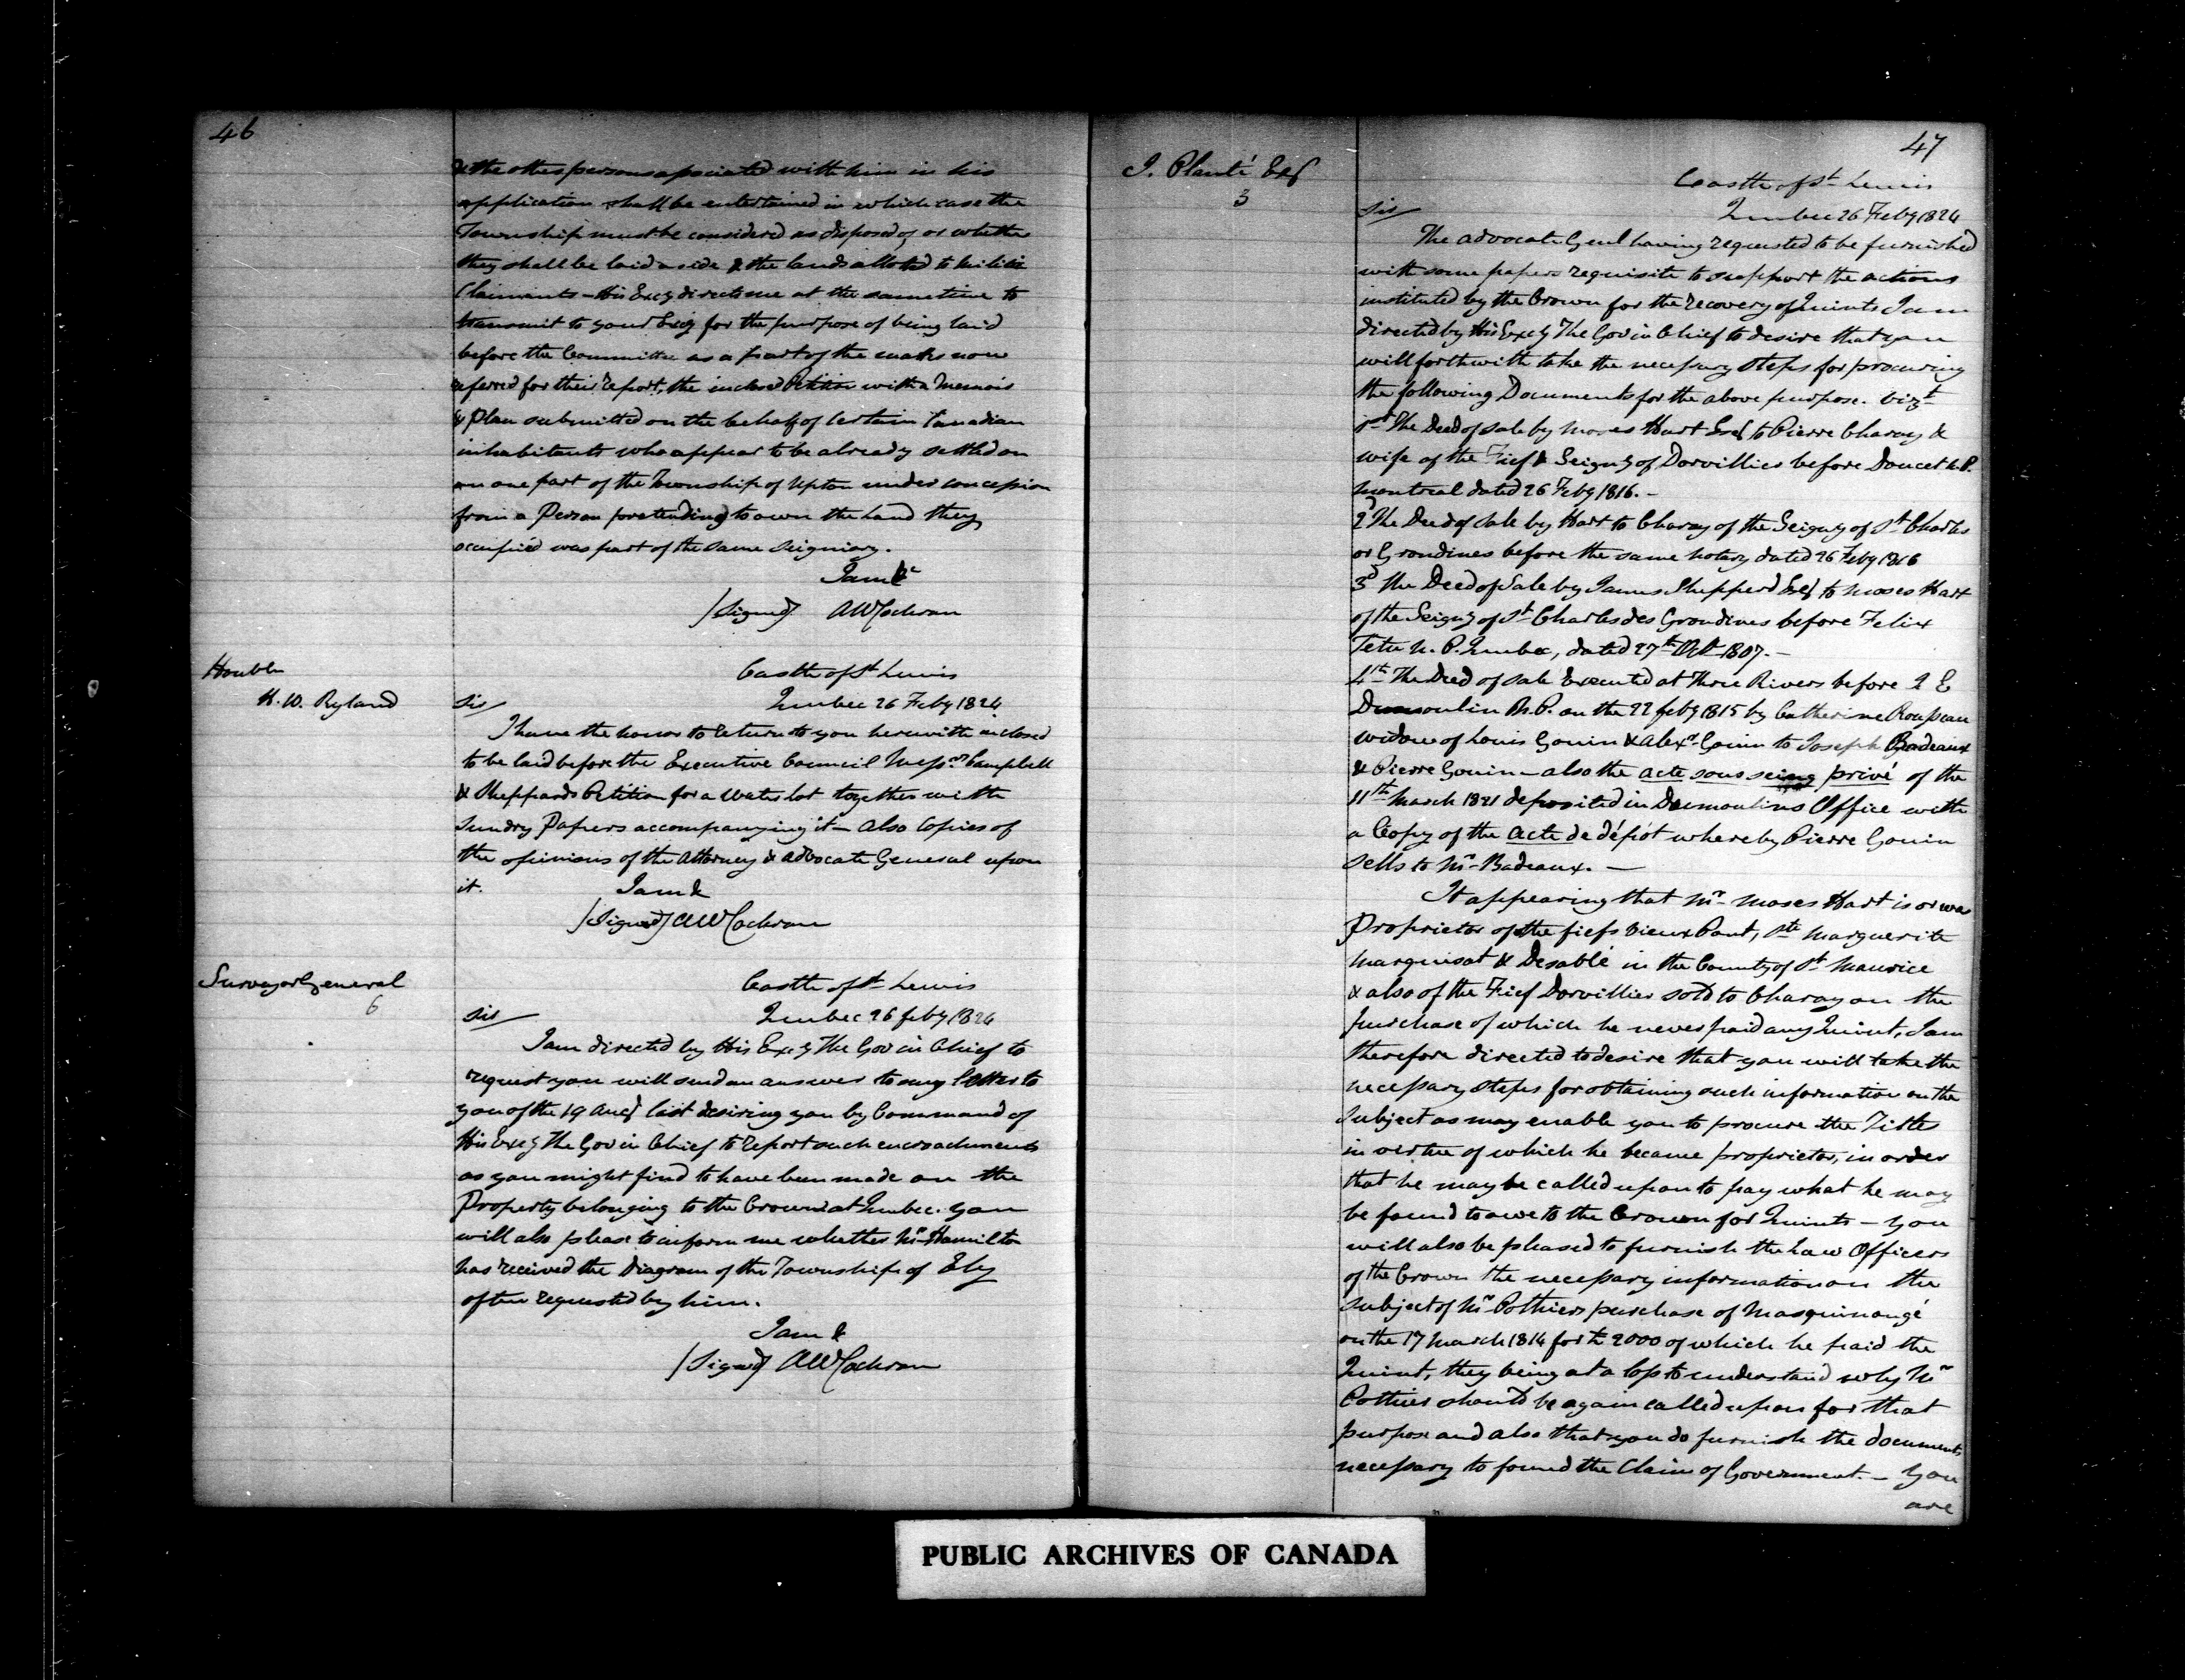 46
& the other persons associated with him in his
application shall be entertained in which case the
Township must be considered as disposed of or whether
they shall be laid aside & the lands alloted to Militia
Claimants – His Excy directs me at the same time to
transmit to your Excy for the purpose of being laid
before the Committee as a part of the matter now
referred for their report, the inclosed Petition with a Memoir
& Plan submitted on the behalf of certain Canadian
inhabitants who appear to be already settled on
on one part of the Township of Upton under concession
from a Person pretending to own the Land they
occupied was part of the same Seigniory.
I am &c
/Signed/ AWCochran
Honble
H. W. Ryland
Castle of St Lewis
Sir/ Quebec 26 Feby 1824
I have the honor to return to you herewith inclosed
to be laid before the Executive Council Messrs Campbell
& Sheppards Petition for a Water lot together with
Sundry Papers accompanying it – also Copies of
the opinions of the Attorney & Advocate General upon
it. I am &
/Signed/ AWCochran
Surveyor General
6
Castle of St Lewis
Sir/ Quebec 26 feby 1824
I am directed by His Excy The Gov in Chief to
request you will send an answer to my letter to
you of the 19 Augt last desiring you by Command of
His Excy The Gov in Chief to report such encroachments
as you might find to have been made on the
Property belonging to the Crown at Quebec. You
will also please to inform me whether Mr Hamilton
has received the Diagram of the Township of Ely
often requested by him.
I am &
/Signed/ AWCochran
47
J. Planté Esq
3
Castle of St Lewis
Sir/ Quebec 26 Feby 1824
The Advocate Genl having requested to be furnished
with some papers requisite to support the actions
instituted by the Crown for the recovery of Quints I am
directed by His Excy The Gov in Chief to desire that you
will forthwith take the necessary steps for procuring
the following Documents for the above purpose. Vizt
1st The Deed of Sale by Moses Hart Esq to Pierre Charay &
wife of the Fief & Seigny of Dorvillier before Doucet N.P.
Montreal dated 26 Feby 1816. –
2d The Deed of Sale by Hart to Charay of the Seigny of St Charles
or Grondines before the same notary dated 26 Feby 1816
3d The Deed of Sale by James Shepperd Esq to Moses Hart
of the Seigny of St Charles des Grondines before Felix
Tetu N. P. Quebec, dated 27th Octr 1807. –
4th The Deed of Sale Executed at Three Rivers before L E
Dumoulin N.P. on the 22 feby 1815 by Catherine Rousseau
widow of Louis Gouin & Alexr Gouin to Joseph Badeaux
& Pierre Gouin – also the acte sous seing privé of the
11th March 1821 deposited in Dumoulins Office with
a Copy of the acte de dépôt whereby Pierre Gouin
sells to Mr Badeaux. –
It appearing that Mr Moses Hart is or was
Proprietor of the fiefs Vieux Pont, Ste Marguerite
Marquisat & Desablé in the County of St Maurice
& also of the Fief Dorvillier sold to Charay on the
purchase of which he never paid any Quint, I am
therefore directed to desire that you will take the
necessary steps for obtaining such information on the
subject as may enable you to procure the Titles
in virtue of which he became proprietor, in order
that he may be called upon to pay what he may
be found to owe to the Crown for Quints – you
will also be pleased to furnish the Law Officers
of the Crown the necessary information on the
subject of Mr Pothiers purchase of Masquinongé
on the 17 March 1814 for £ 2000 of which he paid the
Quint, they being at a loss to understand why Mr
Pothier should be again called upon for that
purpose and also that you do furnish the documents
necessary to found the Claim of Government. – You
are
PUBLIC ARCHIVES OF CANADA